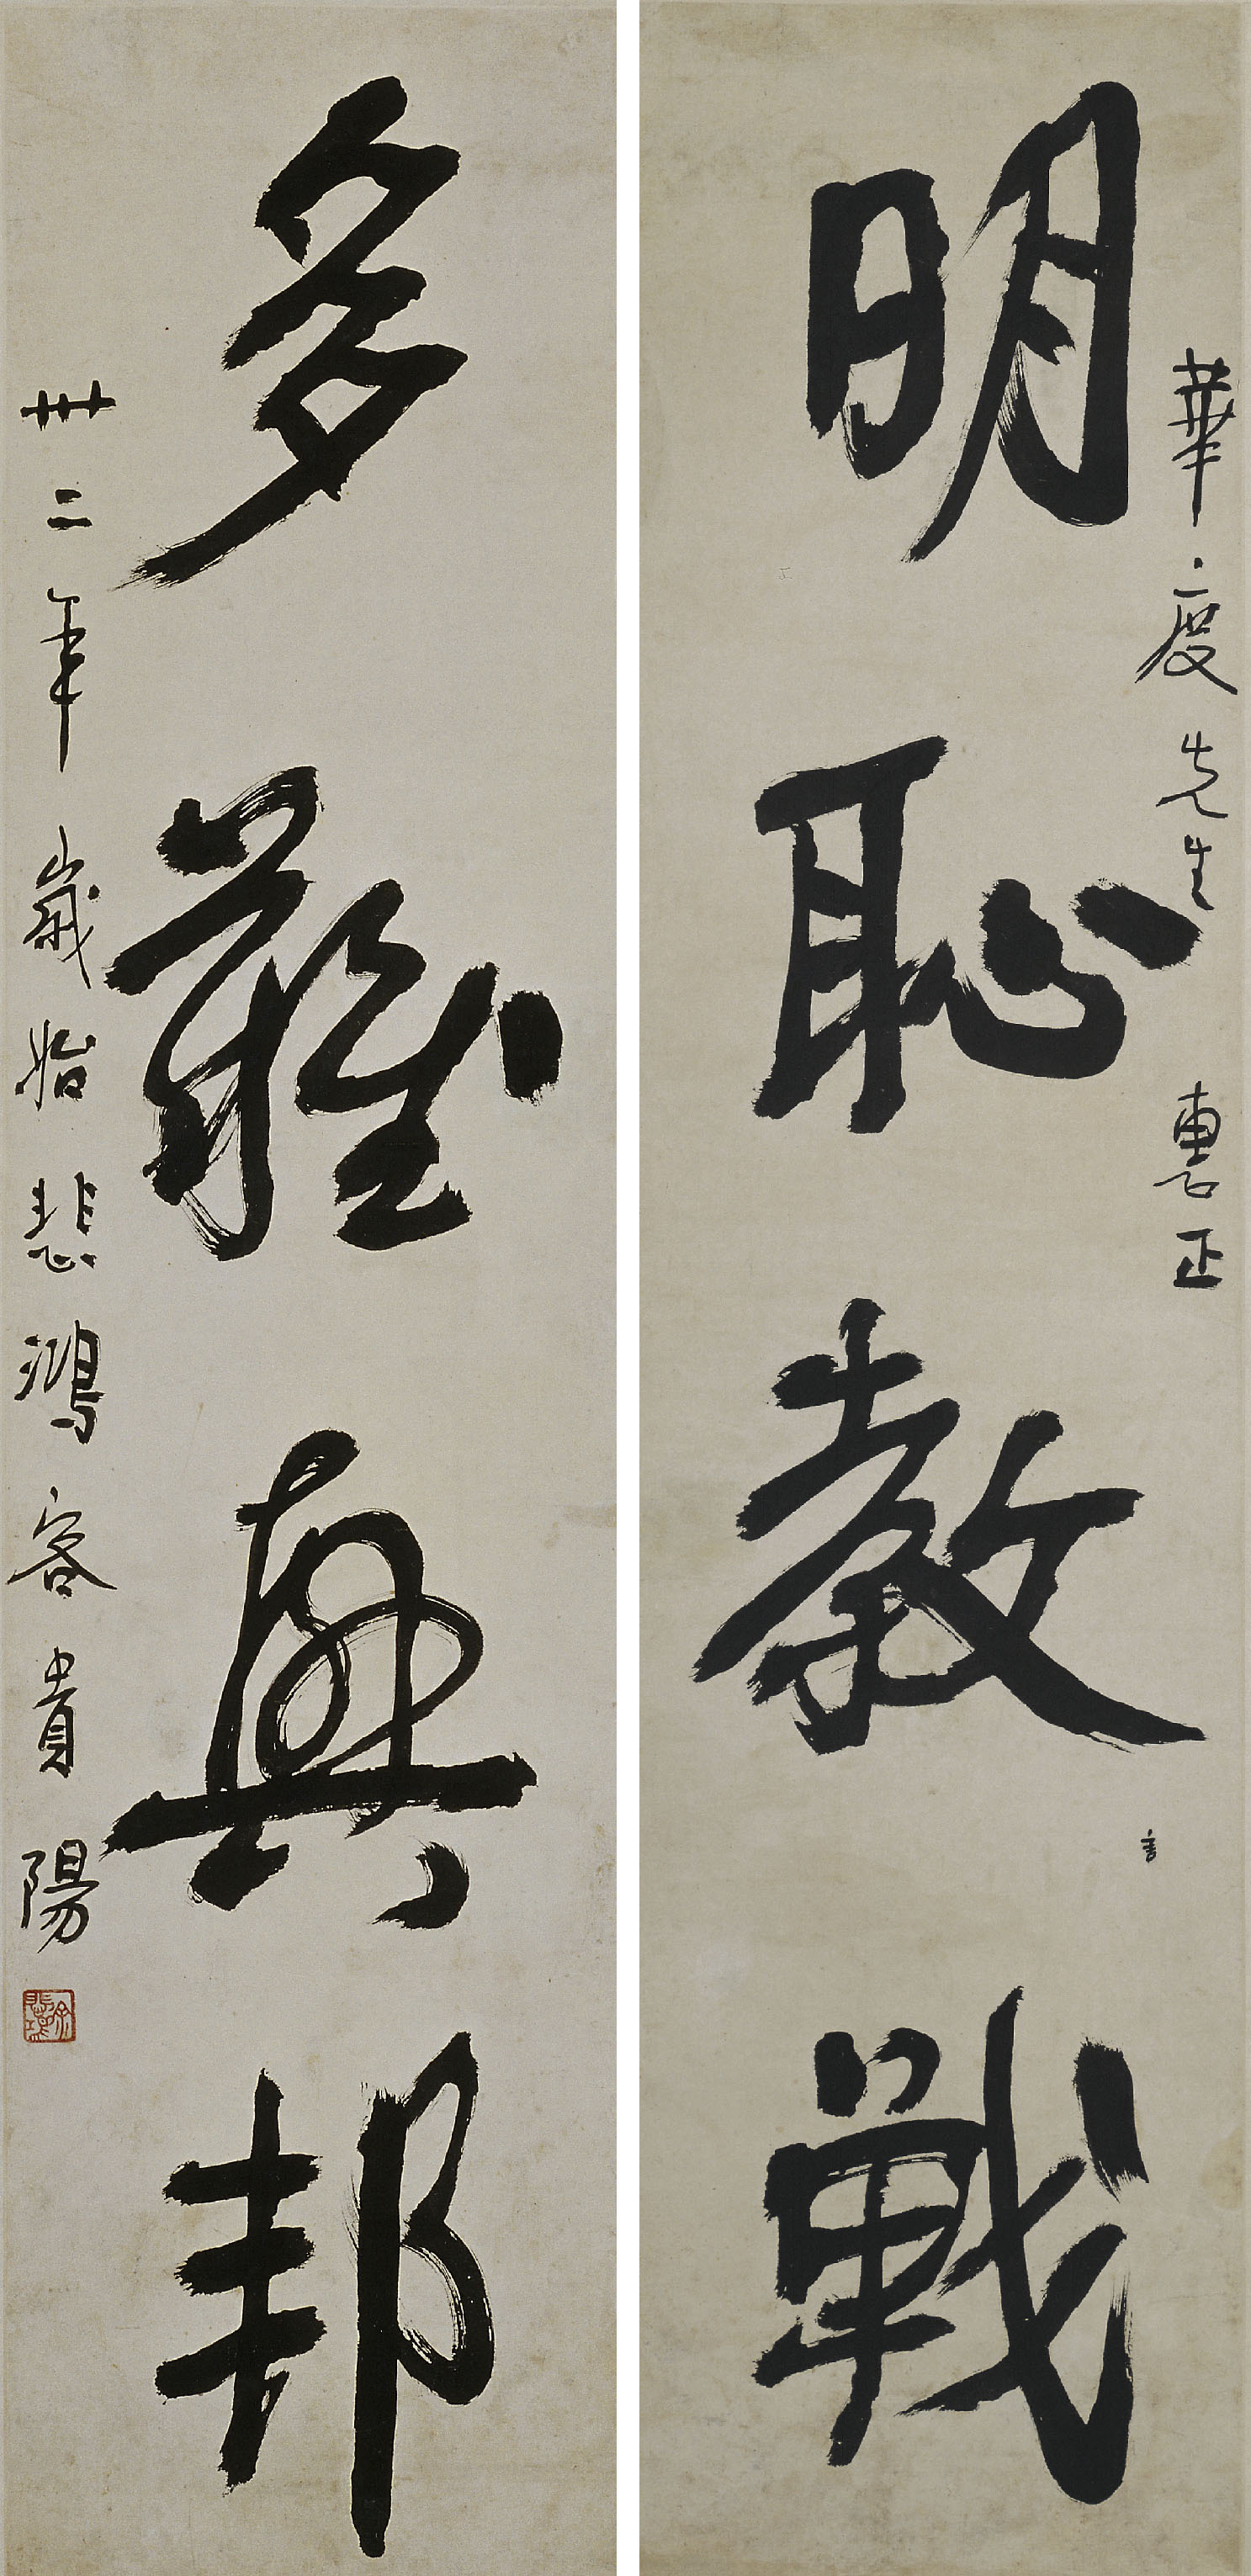 華度先生 惠正
明恥教戰
言
多難興邦
卅二年歲始悲鴻客貴陽